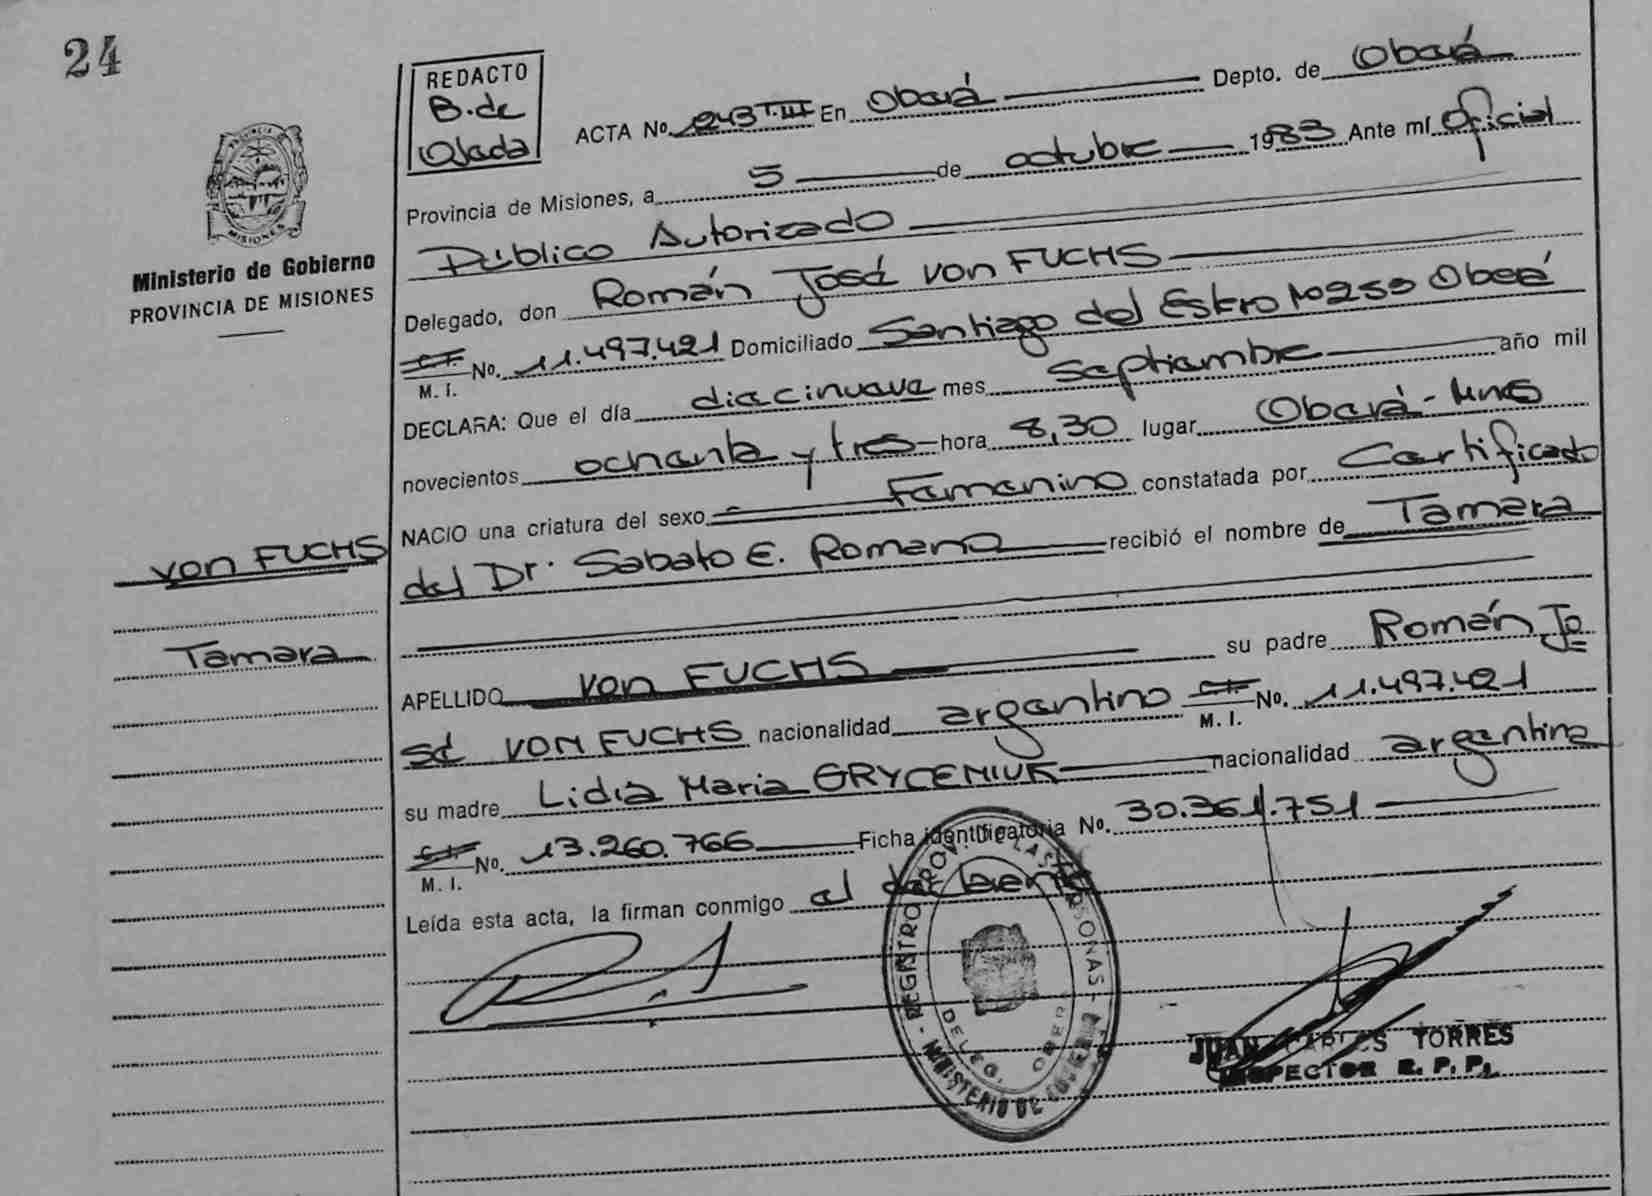 24
REDACTO
B. de
Ojeda
ACTA No 1243 T.III En Oberá Depto. de Oberá
Provincia de Misiones, a 5 de octubre 1983 Ante mí Oficial
Público Autorizado
PROVINCIA DE
MISIONES
Ministerio de Gobierno
PROVINCIA DE MISIONES
Delegado, don Román José von FUCHS
C.I. M. I. No. 11.497.421 Domiciliado Santiago del Estero No 259 Oberá
DECLARA: Que el día diecinueve mes septiembre año mil
novecientos ochenta y tres hora 8,30 lugar Oberá - Mnes
NACIO una criatura del sexo Femenino constatada por Certificado
del Dr. Sabato E. Romano recibió el nombre de Tamara
von FUCHS
Tamara
APELLIDO von FUCHS su padre Román Jo
sé von FUCHS nacionalidad argentino C.I. M. I. No. 11.497.421
su madre Lidia Maria GRYCENIUK nacionalidad argentina
C.I. M. I. No. 13.260.766 Ficha identificatoria No. 30.361.751
Leída esta acta, la firman conmigo el declarente
REGISTRO PROV. DE LAS PERSONAS - MINISTERIO DE GOBIERNO
DELEG. OBERA
JUAN CARLOS TORRES
INSPECTOR R. P. P.